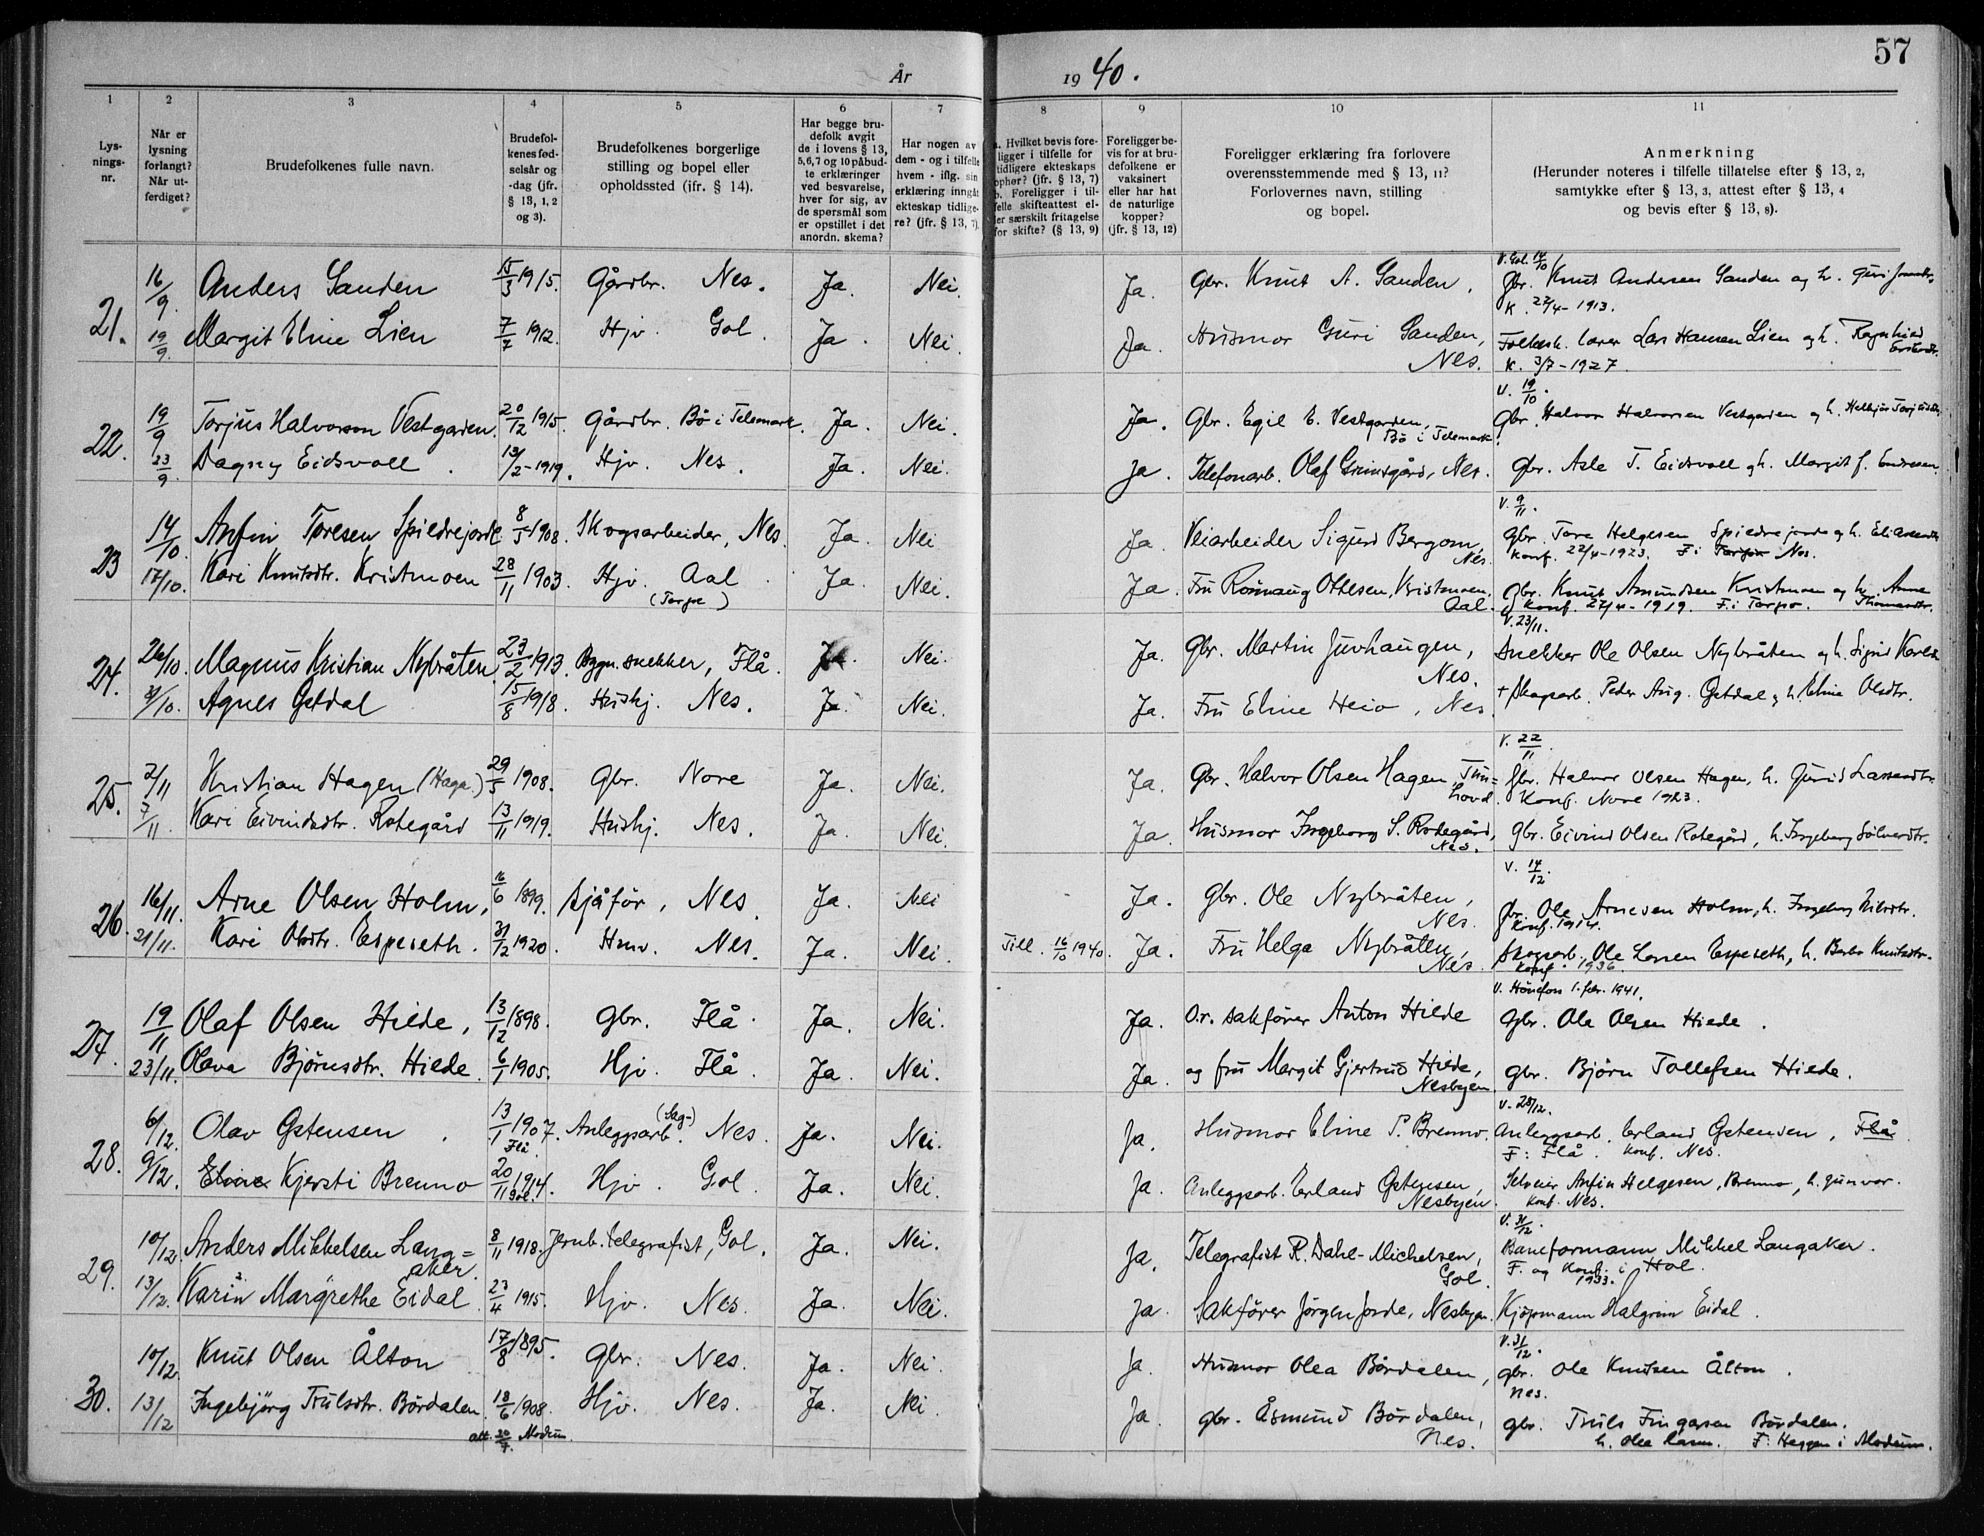 57
År 1940.
1 2 3 4 5 6 7 8 9 10 11
Lysningsnr.
Når er lysning forlangt? Når utferdiget?
Brudefolkenes fulle navn.
Brudefolkenes fødselsår og -dag (jfr. § 13, 1, 2 og 3).
Brudefolkenes borgerlige stilling og bopel eller opholdssted (ifr. § 14).
Har begge brudefolk avgit de i lovens § 13, 5, 6, 7 og 10 påbudte erklæringer ved besvarelse, hver for sig, av de spørsmål som er opstillet i det anordn. skema?
Har nogen av dem - og i tilfelle hvem - iflg. sin erklæring inngått ekteskap tidligere? (jfr. § 13, 7).
a. Hvilket bevis foreligger i tilfelle for tidligere ekteskaps ophør? (jfr. § 13, 7) b. Foreligger i tilfelle skifteattest eller særskilt fritagelse for skifte? (§ 13, 9)
Foreligger bevis for at brudefolkene er vaksinert eller har hat de naturlige kopper? (jfr. § 13, 12)
Foreligger erklæring fra forlovere overensstemmende med § 13, 11? Forlovernes navn, stilling og bopel.
Anmerkning (Herunder noteres i tilfelle tillatelse efter § 13, 2, samtykke efter § 13, 3, attest efter § 13, 4 og bevis efter § 13, 8).
V. Gol. 14/10
21. 16/9 Anders Sanden 15/3 1915. Gårdbr. Nes. Ja. Nei. Ja. Gbr. Knut A. Sanden, Gbr. Knut Andersen Sanden og h. Guri
K. 27/4-1913.
19/9 Margit Eline Lien 7/7 1912. Hjv. Gol. Ja. Nei. Ja. Husmor Guri Sanden, Nes. Folkesk. lærer Lars Hansen Lien og h. Ragnhild
K. 3/7-1927.
V. 19/10.
22. 19/9 Torjus Halvorson Vestgarden. 20/12 1915. Gårdbr. Bø i Telemark. Ja. Nei. Ja. Gbr. Egil E. Vestgarden, Bø i Telemark. Gbr. Halvor Halvorsen Vestgarden og h.
23/9 Dagny Eidsvoll. 13/2-1919. Hjv. Nes. Ja. Nei. Ja. Telefonarb. Olaf Grimsgård, Nes. Gbr. Asle T. Eidsvoll og h. Margit
V. 9/11.
23 14/10. Anfin Toresen Spildrejorde 8/5 1908. Skogsarbeider, Nes. Ja. Nei. Ja. Veiarbeider Sigurd Bergom, Nes. Gbr. Tore Helgesen Spildrejorde og h.
Konf. 22/4-1923. F. i Torpo Nes.
17/10. Kari Knutsdtr. Kristmoen 28/11 1903. Hjv. Aal (Torpo) Ja. Nei. Ja. Fru Rønnaug Ottesen, Kristmoen, Aal. Gbr. Knut Amundsen Kristmoen og h. Anne Thomasdtr.
Konf. 27/4-1919. F. i Torpo.
V. 23/11.
24. 26/10. Magnus Kristian Nybråten 23/2 1913. Bygn. snekker, Flå. Ja. Nei. Ja. Gbr. Martin Juvhaugen, Nes. Snekker Ole Olsen Nybråten og h. Sigrid
31/10. Agnes Gstdal 15/8 1918. Hushj. Nes. Ja. Nei. Ja. Fru Eline Heio, Nes. + Skogsarb. Peder Aug. Gstdal og h. Eline Olsdtr.
V. 22/11.
25. 2/11 Kristian Hagen (Haga.) 29/5 1908. Gbr. Nore Ja. Nei. Ja. Gbr. Halvor Olsen Hagen, Tunhovd. Gbr. Halvor Olsen Hagen, h. Gunild Larsendtr.
Konf. Nore 1923.
7/11. Kari Eivindsdtr. Rotegård 13/11 1919. Hushj. Nes. Ja. Nei. Ja. Husmor Ingeborg S. Rotegård, Nes. Gbr. Eivind Olsen Rotegård, h. Ingeborg Sølversdtr.
V. 14/12.
26. 16/11. Arne Olsen Holm, 16/6 1899. Sjåfør, Nes. Ja. Nei Ja. Gbr. Ole Nybråten, Nes. Gbr. Ole Arnesen Holm, h. Ingeborg Nilsdtr.
Konf. 1914.
21/11. Kari Olsdtr. Espeseth. 31/12 1920. Hmv. Nes. Ja. Nei. Till. 16/10 1940. Ja. Fru Helga Nybråten, Nes. Skogsarb. Ole Larsen Espeseth, h. Barbo Knutsdtr.
Konf. 1936.
V. Hønefoss 1. febr. 1941.
27. 19/11 Olaf Olsen Hilde, 13/12 1898. Gbr. Flå. Ja. Nei. Ja. O.r. sakfører Anton Hilde Gbr. Ole Olsen Hilde.
23/11. Oleva Bjørnsdtr. Hilde. 6/1 1905. Hjv. Flå. Ja. Nei. Ja. og fru Margit Gjertrud Hilde, Nesbyen. Gbr. Bjørn Tollefsen Hilde.
V. 28/12.
28. 6/12. Olav Gstensen. 13/1 1907. Flå. Anleggsarb. (Sag-) Nes. Ja. Nei. Ja. Husmor Eline P. Brenno. Anleggsarb. Erland Gstensen, Flå.
F: Flå. Konf. Nes.
9/12. Eline Kjersti Brenno 20/11 1914. Gol. Hjv. Gol. Ja. Nei. Ja. Anleggsarb. Erland Gstensen, Nesbyen. Selveier Anfin Helgesen, Brenno, h. Gunvor.
Konf. Nes.
V. 31/12.
29. 10/12. Anders Mikkelsen Langaker. 8/11 1918. Jernb. telegrafist, Gol. Ja. Nei. Ja. Telegrafist R. Dahl-Michelsen, Gol. Baneformann Mikkel Langaker.
F. og Konf. i Hol. 1933.
13/12. Karin Margrethe Eidal. 23/4 1915. Hjv. Nes. Ja. Nei. Ja. Sakfører Jørgen Jorde, Nesbyen. Kjøpmann Halgrim Eidal.
V. 31/12.
30. 10/12. Knut Olsen Ålton 17/8 1895. Gbr. Nes. Ja. Nei. Ja. Husmor Olea Bårdalen, Gbr. Ole Knutsen Ålton.
Nes.
13/12 Ingebjörg Trulsdtr. Bårdalen. 18/6 1908. Hjv. Nes. Ja. Nei. Ja. Gbr. Åsmund Bårdalen, Nes. Gbr. Truls Fingarsen Bårdalen.
att. 20/7 Modum. F: Heggen i Modum.